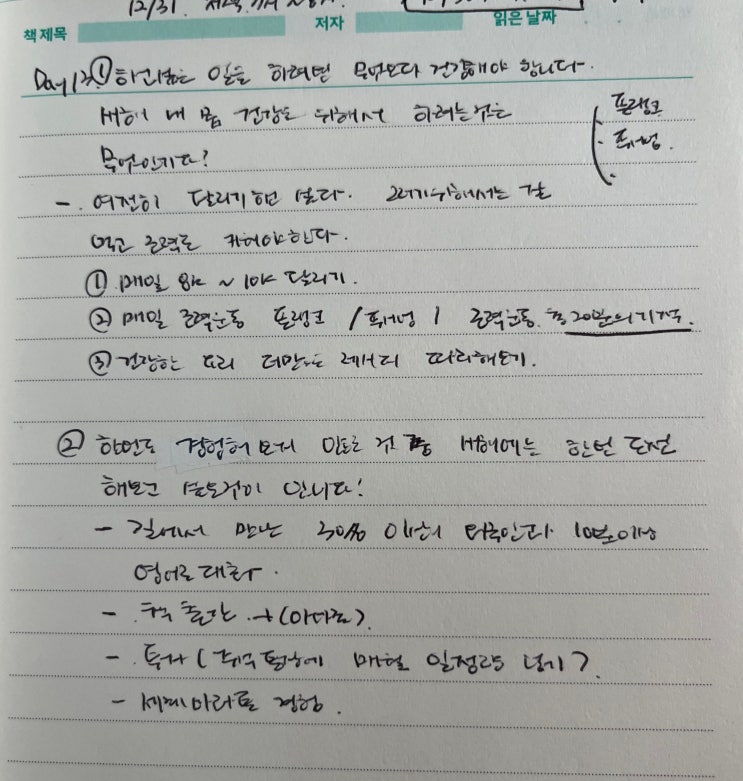 12/31.
책 제목 저자 읽은 날짜
Day 13. ① 하고싶은 일을 하려면 무엇보다 건강해야 합니다.
새해 내 몸 건강을 위해서 하려는것은
무엇인가요?
프랭크
푸쉬업.
- 여전히 달리기하고 싶다. 그러기위해서는 잘
먹고 근력을 키워야한다.
① 매일 8k ~ 10k 달리기.
② 매일 근력운동 프랭크 / 푸쉬업 / 근력운동. 중 20분의 기적.
③ 건강한 요리 더만드는 레시피 따라해보기.
② 한번도 경험해 보지 않은 것 중 새해에는 한번 도전
해보고 싶은것이 있나요!
- 길에서 만난 30% 이상의 외국인과 10분이상
영어로 대화.
- 책 출간. →
- 투자 ( 매월 일정량 넣기).
- 세계마라톤 경험.